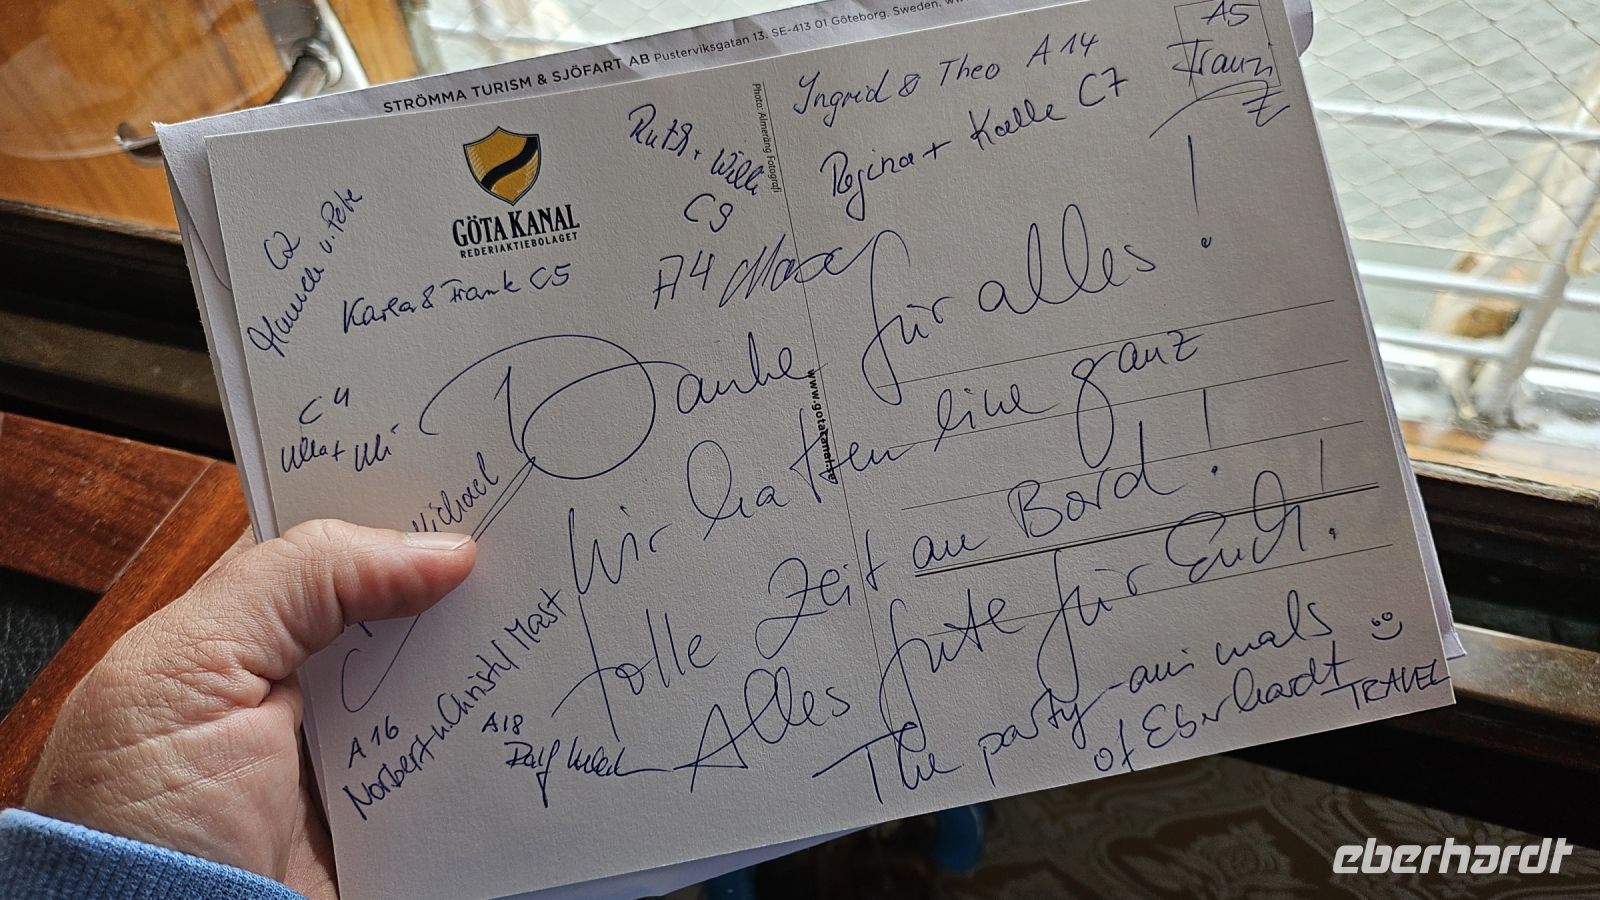 STRÖMMA TURISM & SJÖFART AB Pusterviksgatan 13. SE-413 01 Göteborg. Sweden.
A5
Franzi
Z
Ingrid & Theo A14
Regina + Kalle C7
Ruth + Willi
C9
Photo: Almeräng Fotografi
GÖTA KANAL
REDERIAKTIEBOLAGET
C2
Karla & Frank C5
A4
C4
Ulla + Uli
Michael
Danke für alles!
www.gotakanal.se
Wir hatten eine ganz
tolle Zeit an Bord!
Alles Gute für Euch!
The party-animals
of Eberhardt
TRAVEL
A16
Norbert u. Christl Mast
A18
Ralf
eberhardt